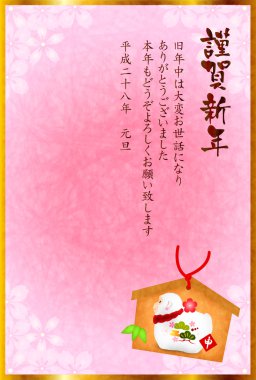 謹賀新年
旧年中は大変お世話になり
ありがとうございました
本年もどうぞよろしくお願い致します
平成二十八年　元旦
申